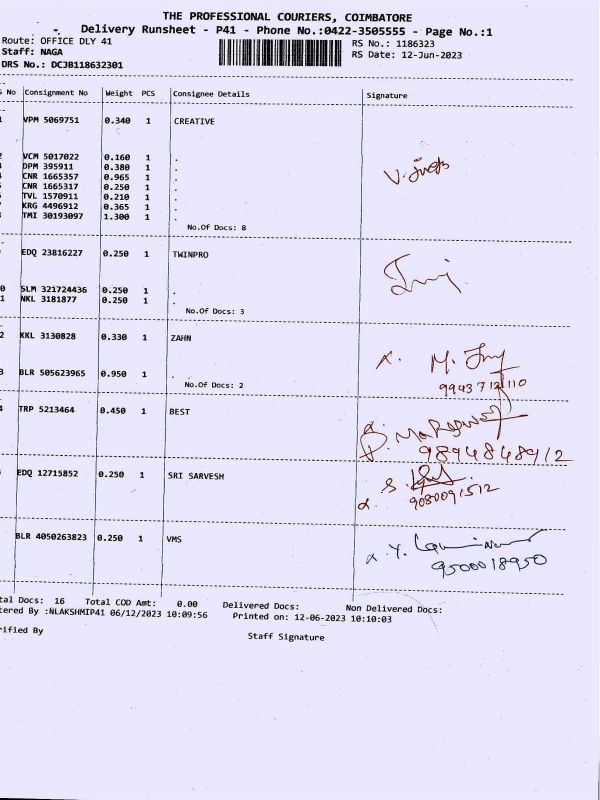 THE PROFESSIONAL COURIERS, COIMBATORE
Delivery Runsheet - P41 - Phone No.:0422-3505555 - Page No.:1
Route: OFFICE DLY 41
RS No.: 1186323
Staff: NAGA
RS Date: 12-Jun-2023
DRS No.: DCJB118632301
No Consignment No Weight PCS Consignee Details Signature
VPM 5069751 0.340 1 CREATIVE
VCM 5017022 0.160 1 .
DPM 395911 0.380 1 .
CNR 1665357 0.965 1 .
CNR 1665317 0.250 1 .
TVL 1570911 0.210 1 .
KRG 4496912 0.365 1 .
TMI 30193097 1.300 1 .
No.Of Docs: 8
EDQ 23816227 0.250 1 TWINPRO
0 SLM 321724436 0.250 1 .
1 NKL 3181877 0.250 1 .
No.Of Docs: 3
2 KKL 3130828 0.330 1 ZAHN
3 BLR 505623965 0.950 1 .
No.Of Docs: 2
4 TRP 5213464 0.450 1 BEST
9894848912
EDQ 12715852 0.250 1 SRI SARVESH
9080091512
BLR 4050263823 0.250 1 VMS
9500018950
tal Docs: 16 Total COD Amt: 0.00 Delivered Docs: Non Delivered Docs:
tered By :NLAKSHMIP41 06/12/2023 10:09:56 Printed on: 12-06-2023 10:10:03
rified By
Staff Signature